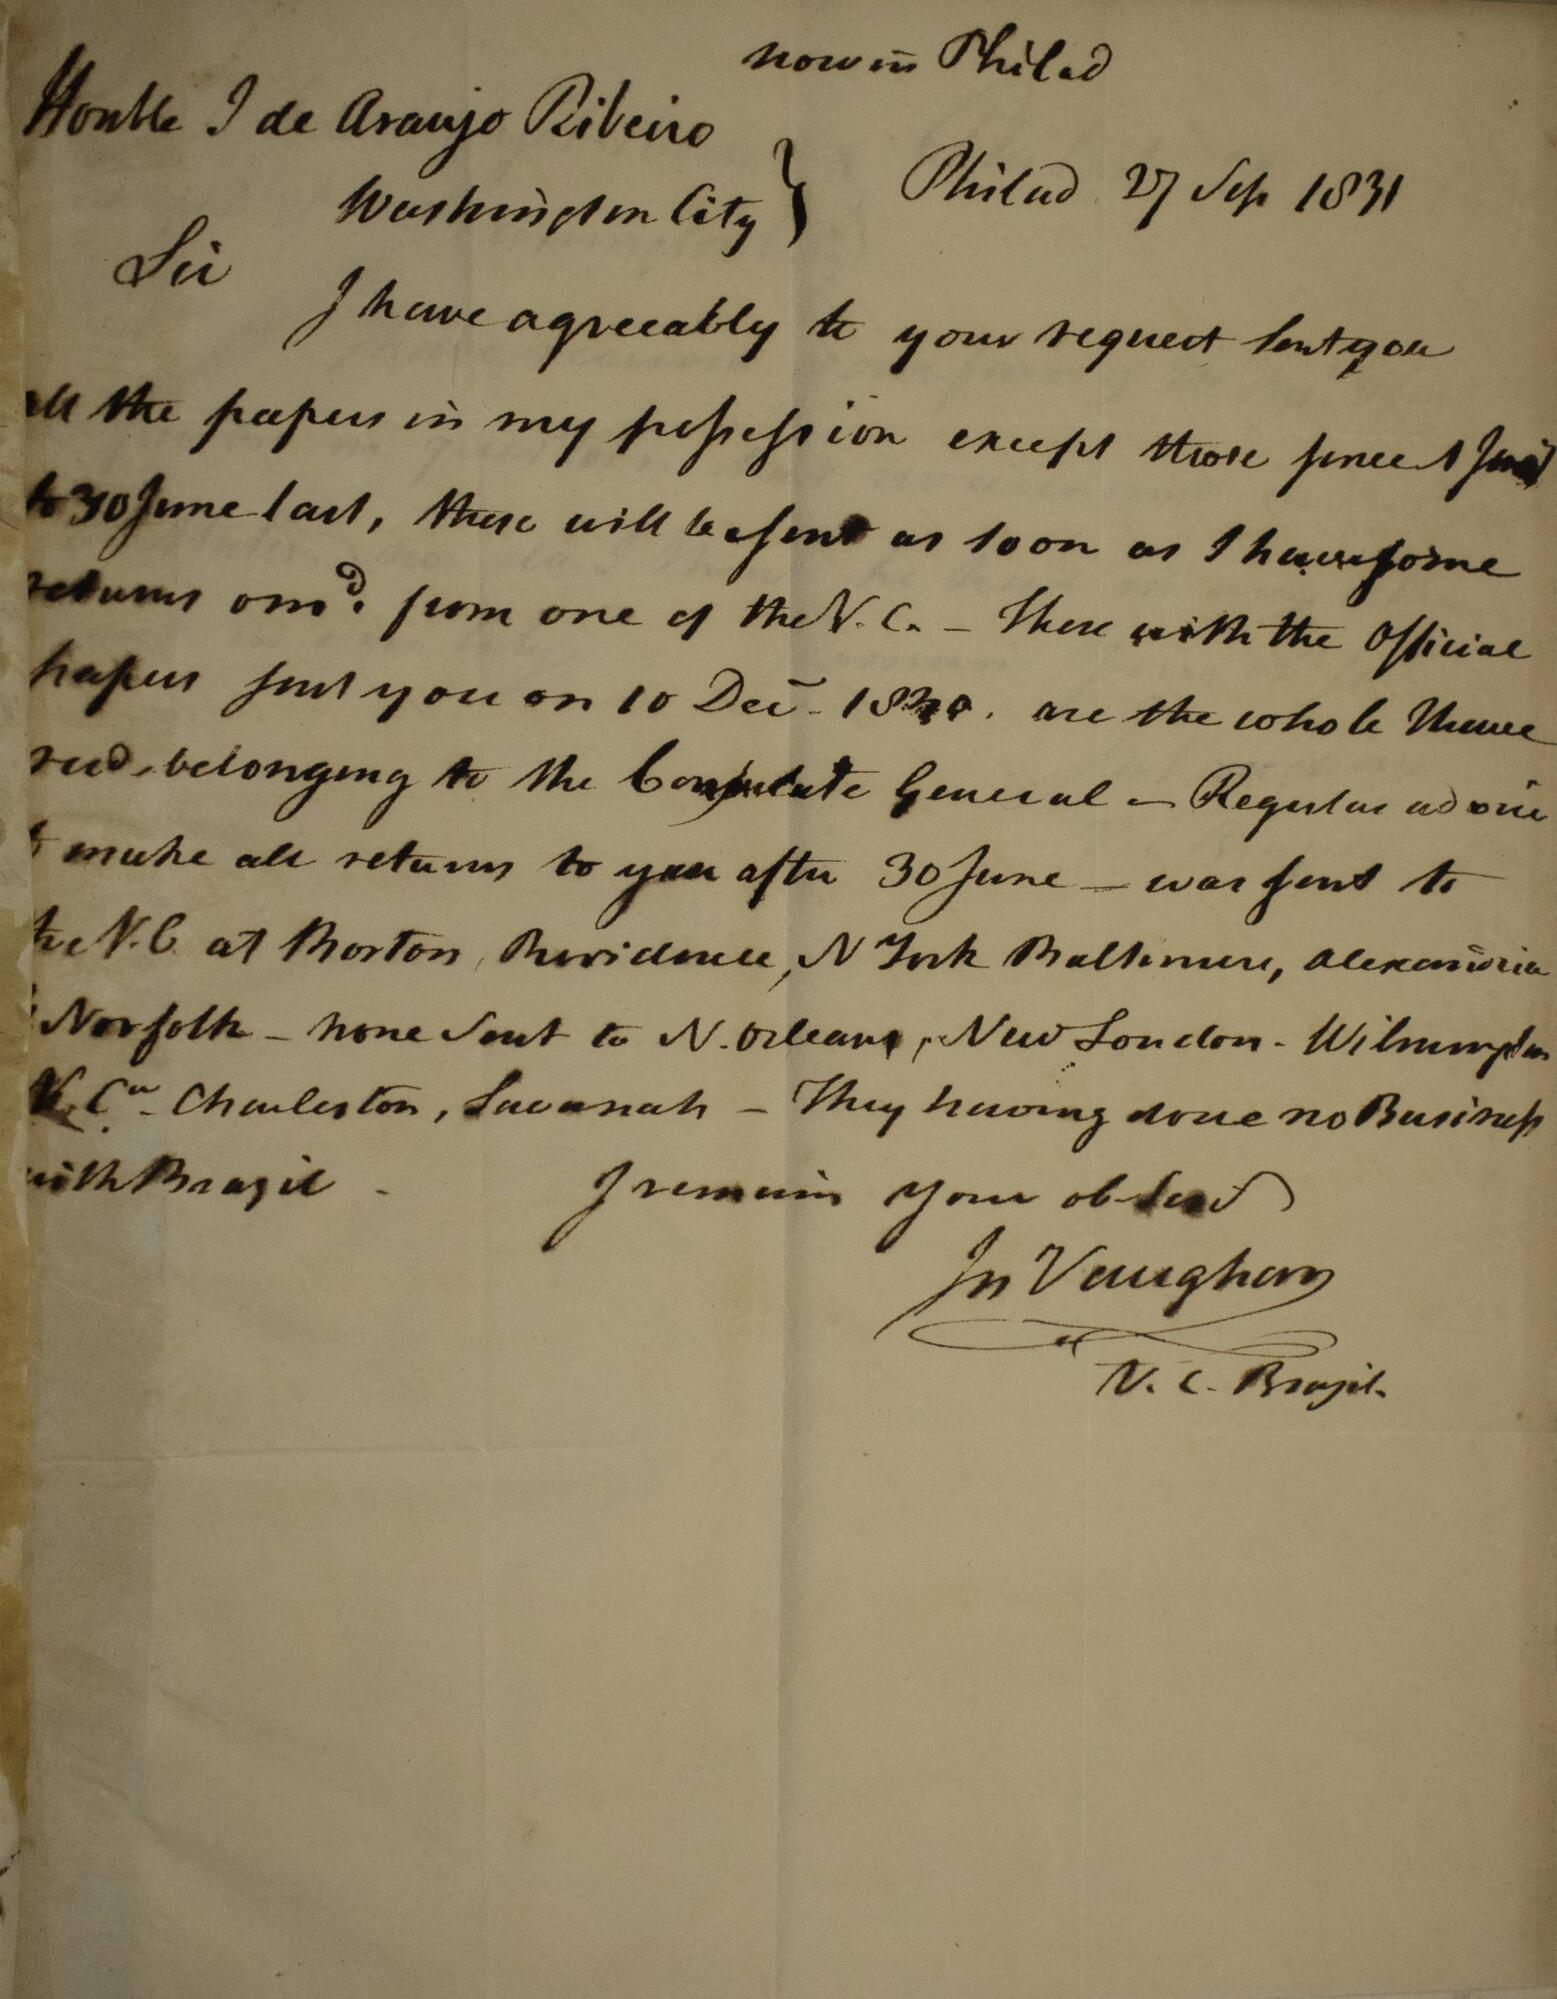 now in Philad
Honble J de Araujo Ribeiro
Washington City } Philad 27 Sep 1831
Sir
I have agreeably to your request sent you
all the papers in my possession except those since 1
to 30 June last, these will be sent as soon as I have some
returns omd. from one of the V. C. – These with the official
papers sent you on 10 Dec – 1830. are the whole I have
recd. belonging to the Consulate General – Regular advice
to make all returns to you after 30 June – was sent to
the V. C. at Boston, Providence, N York Baltimore, Alexandria
& Norfolk – none sent to N. Orleans, New London – Wilmington
N. Ca – Charleston, Savanah – They having done no Business
with Brazil – I remain your ob Servd
Jn Vaughan
V. C. Brazil.